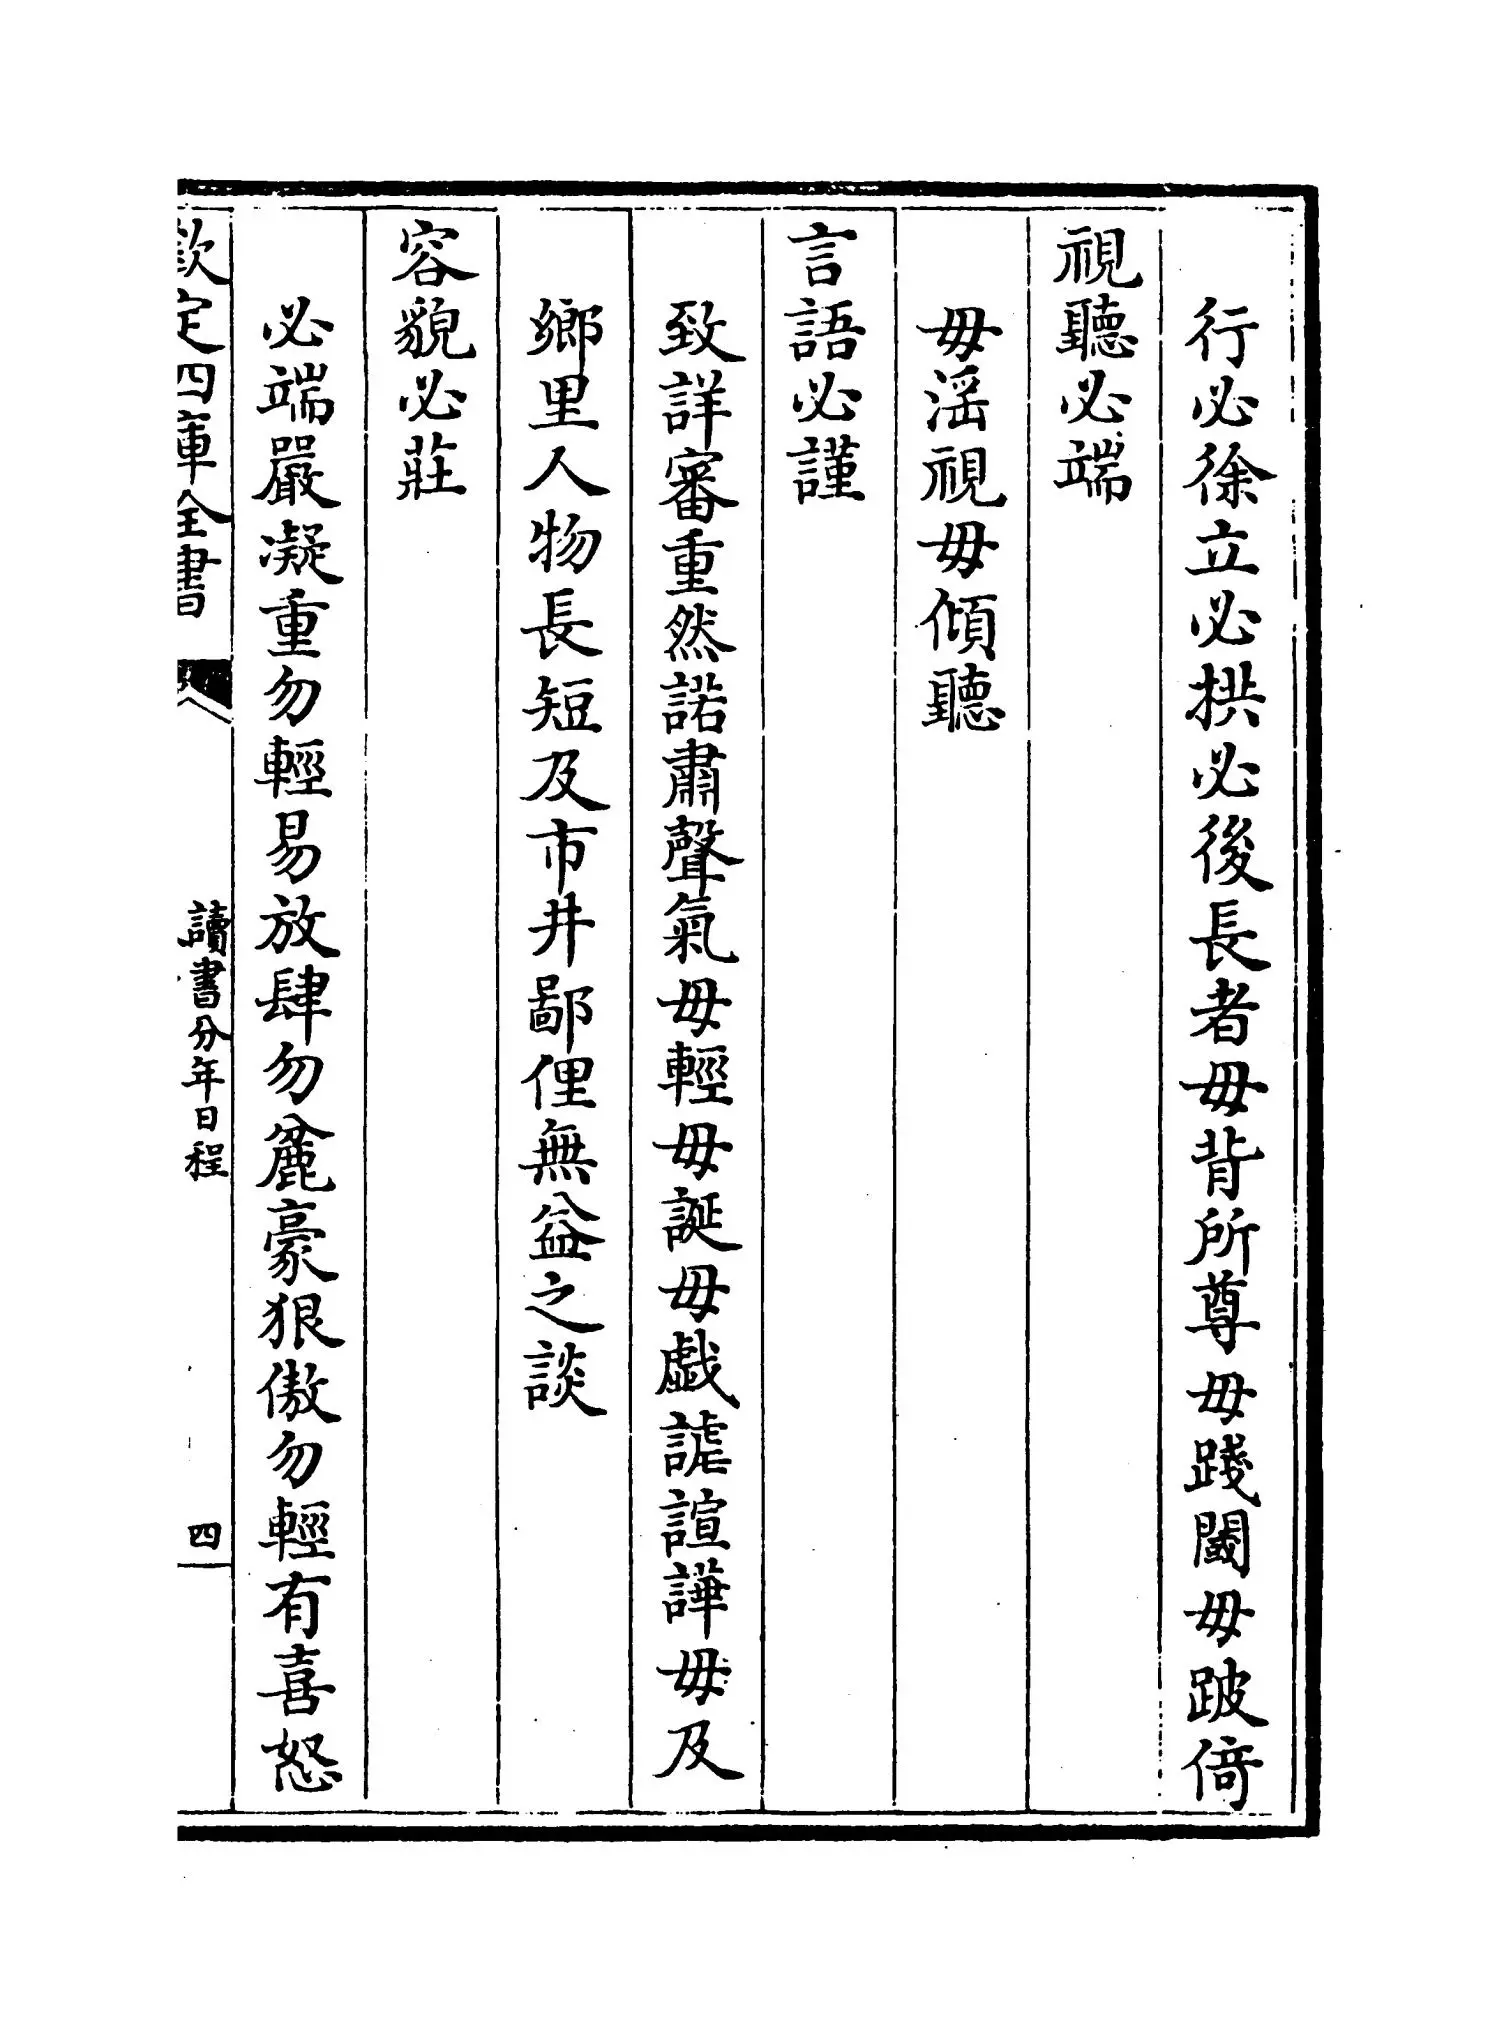 行必徐立必拱必後長者毋背所尊毋踐閾毋跛倚
視聽必端
毋滛視毋傾聽
言語必謹
致詳審重然諾肅聲氣毋輕毋誕毋戯謔諠譁毋及
鄉里人物長短及市井鄙俚無益之談
容貌必莊
必端嚴凝重勿輕易放肆勿麄豪狠傲勿輕有喜怒
欽定四庫全書
讀書分年日程
四